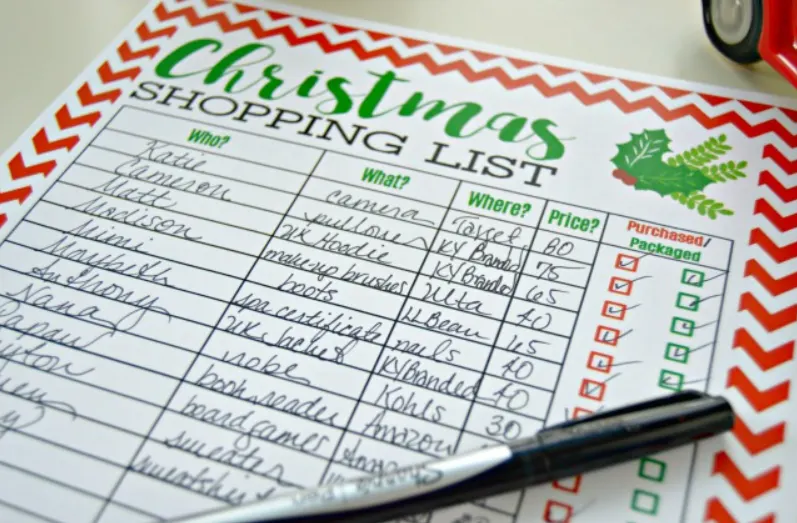 Christmas
SHOPPING LIST
Who? What? Where? Price? Purchased/ Packaged
Katie camera Target 80
Cameron pullover KY Branded 75
Matt UK Hoodie KY Branded 65
Madison make-up brushes Ulta 40
Mimi boots LL Bean
Marybeth spa certificate nails 40
Anthony UK KY Branded 40
Nana robe Kohls 30
Papaw book reader Amazon
board games
sweater
sweatshirt